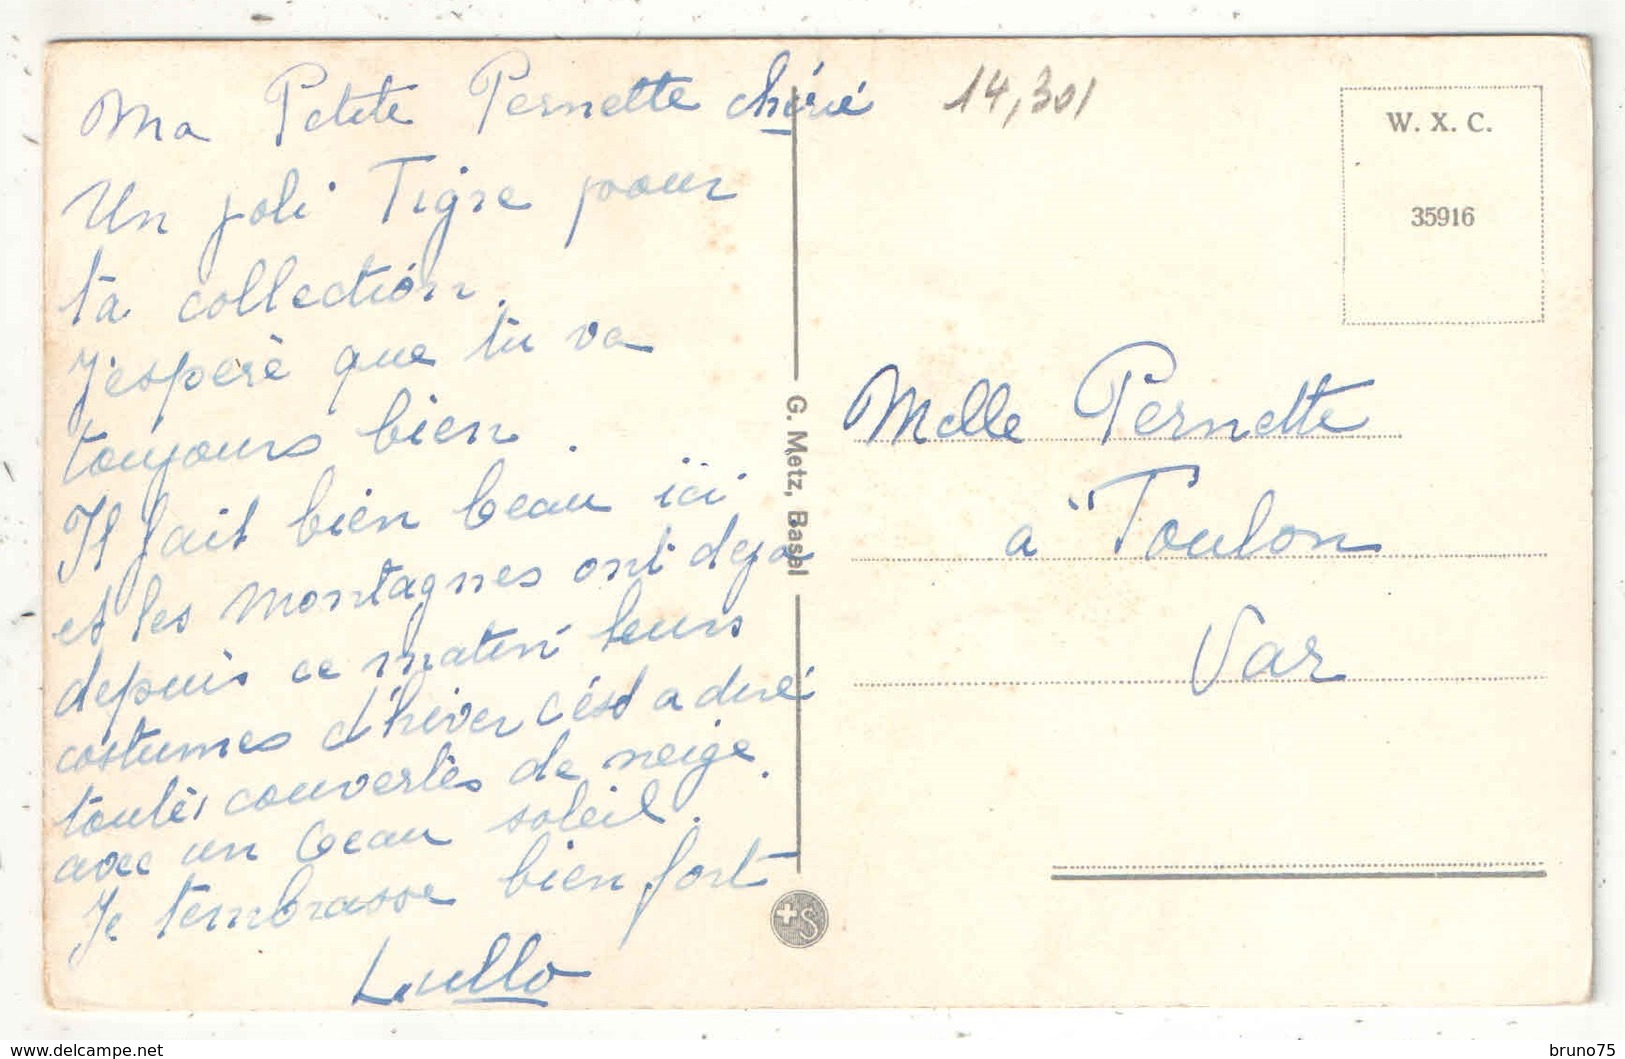 Ma Petite Pernette chérie
Un joli Tigre pour
ta collection.
J'espère que tu va
toujours bien.
Il fait bien beau ici
et les montagnes ont deja
depuis ce matin leurs
costumes d'hiver c'ést a dire
toutes couvertes de neige.
avec un beau soleil.
Je tembrasse bien fort
Lullo
14,301
G. Metz, Basel
+S
W. X. C.
35916
Melle Pernette
a "Toulon
Var
www.delcampe.net
bruno75